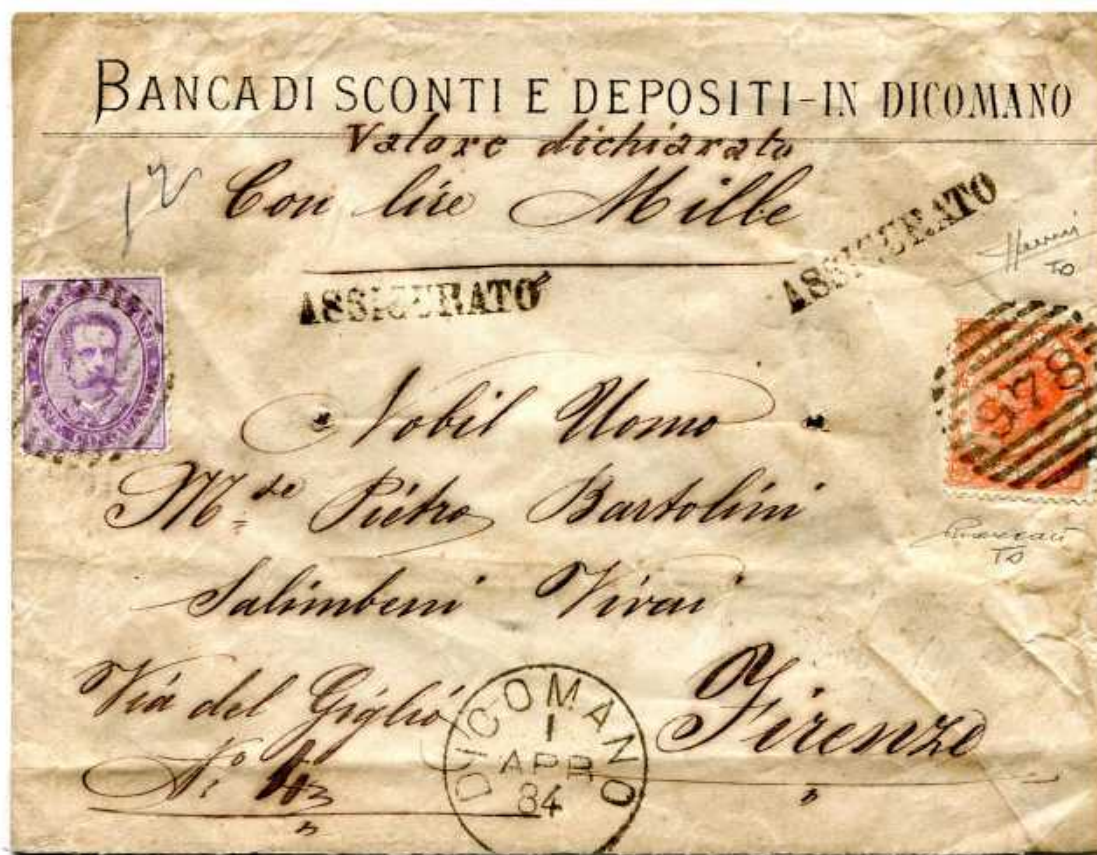 BANCA DI SCONTI E DEPOSITI-IN DICOMANO
Valore dichiarato
12
Con lire Mille
ASSICURATO
ASSICURATO
TO
978
Nobil Uomo
M.se Pietro Bartolini
TO
Salimbeni Vivai
Via del Giglio
Firenze
N.o
DICOMANO
1
APR
84